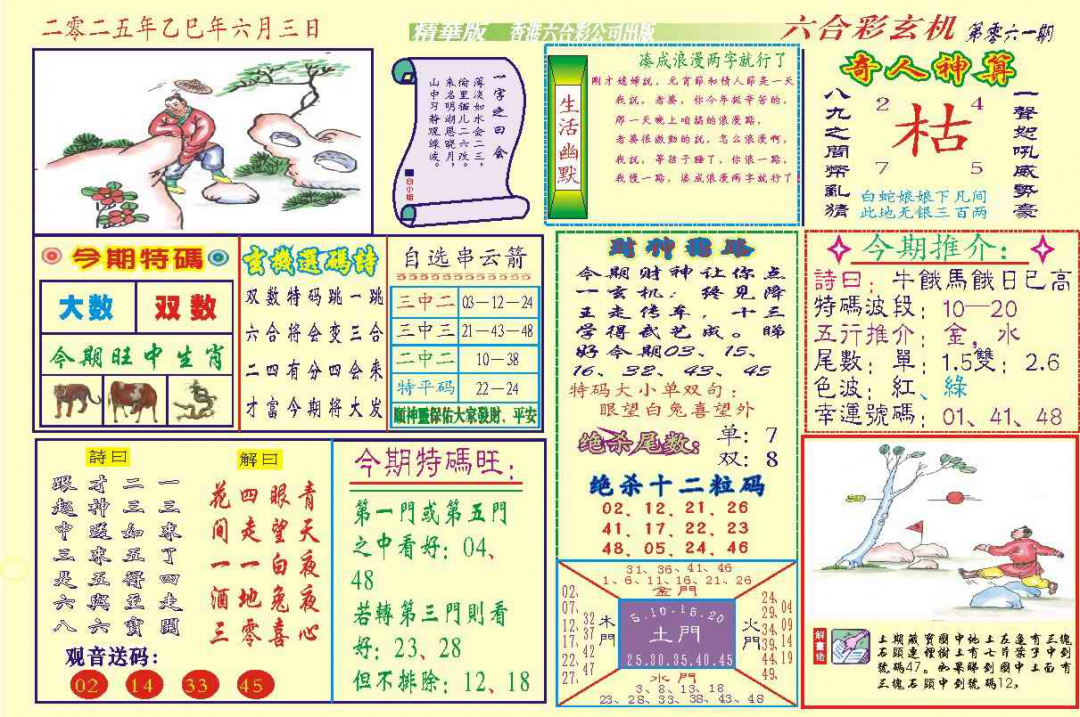 二零二五年乙巳年六月三日
精華版 香港六合彩公司出版
六合彩玄机 第零六一期
一字之曰会
薄淡如水会二三，
偷里猫儿二六改。
来名明湖恩晓月，
山中习静观绿波。
白小姐
生活幽默
凑成浪漫两字就行了
刚才媳婦説，元宵節和情人節是一天
我説，老婆，你今年挺辛苦的，
那一天晚上咱搞的浪漫點，
老婆很激動的説，怎么浪漫啊，
我説，等孩子睡了，你浪一點，
我慢一點，湊成浪漫两字就行了
奇人神算
八九之間禁亂猜
2 4
枯
7 5
一聲恕吼威势豪
白蛇娘娘下凡间
此地无银三百两
今期特碼
大数 双数
今期旺中生肖
玄機選碼詩
双数特码跳一跳
六合将会变三合
二四有分四会来
才富今期将大发
自选串云箭
三中二 03—12—24
三中三 21—43—48
二中二 10—38
特平码 22—24
顺神靈保佑大家發財、平安
財神
今期财神让你点
一玄机：终见降
王走传奉，十三
学得武艺成。睇
好今期03、15、
16、32、43、45
特码大小单双句：
眼望白兔喜望外
绝杀尾数： 单：7
双：8
绝杀十二粒码
02、12、21、26
41、17、22、23
48、05、24、46
今期推介：
詩曰：牛餓馬餓日已高
特碼波段：10—20
五行推介：金，水
尾數：單：1.5雙：2.6
色波：紅、綠
幸運號碼：01、41、48
詩曰
一三来了四走開
二三如五得至寳
才神送来五與六
跟起中三是六八
解曰
青天夜夜心
眼望白兔喜
四走一地零
花间一酒三
观音送码：
02 14 33 45
今期特碼旺：
第一門或第五門
之中看好：04、
48
若轉第三門則看
好：23、28
但不排除：12、18
31、36、41、46
1、6、11、16、21、26
金門
02、07、12、17、22、27、
32、37、42、47
木門
5.10.15.20
土門
25.30.35.40.45
火門
24、29、34、39、44、49、
04、09、14、19
水門
3、8、13、18
23、28、33、38、43、48
解畫佬
上期藏寳圖中地上左邊有三塊
石頭連怪樹上有七片葉子中到
號碼47。如果睇到圖中上面有
三塊石頭中到號碼12，